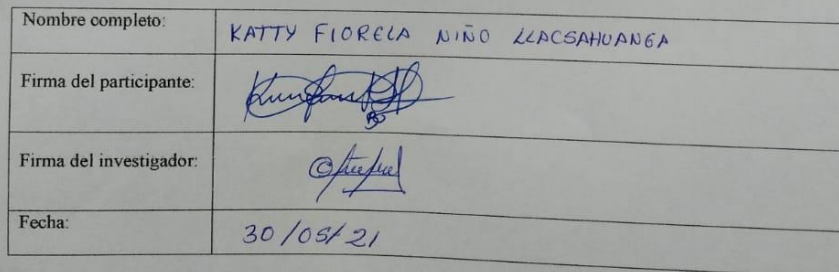 Nombre completo: KATTY FIORELA NIÑO LLACSAHUANGA
Firma del participante:
Firma del investigador:
Fecha: 30/05/21